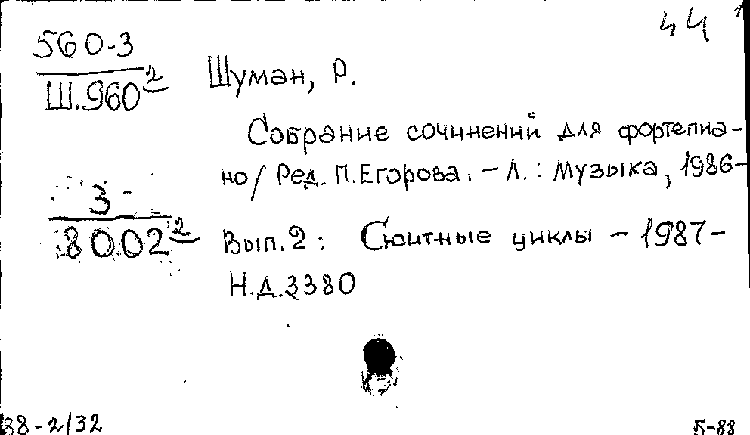 44
560-3
Ш.960²
Шуман, Р.
Собрание сочинений для фортепиа-
но/ Ред. П.Егорова. - Л.: Музыка, 1986-
3-
8002²
Вып.2: Сюитные циклы - 1987-
Н.Д.3380
88-2/32
Б-88